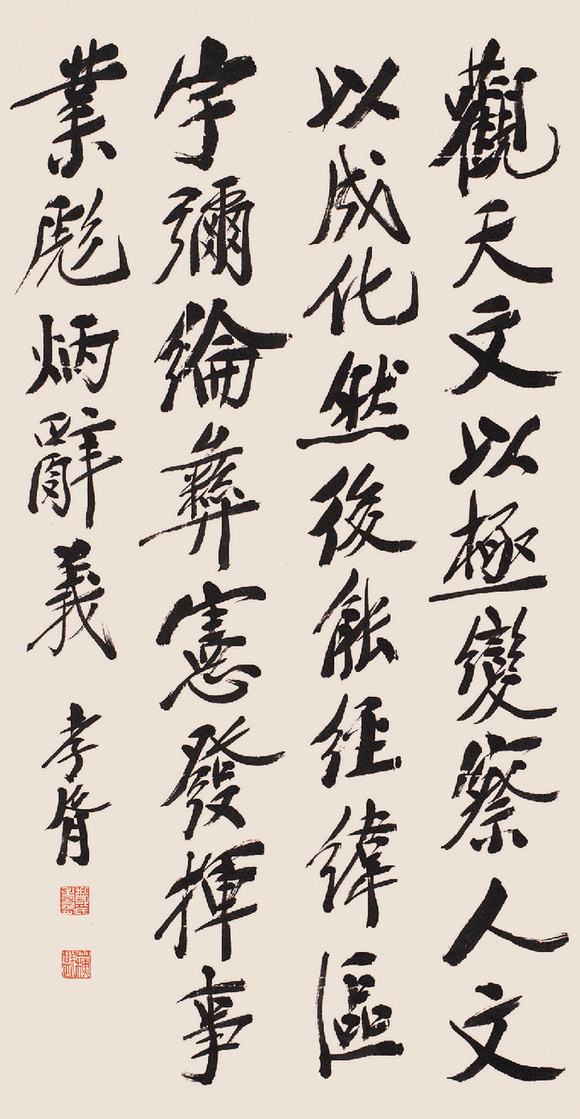 觀天文以極變察人文
以成化然後能經緯區
宇彌綸彝憲發揮事
業彪炳辭義
孝胥